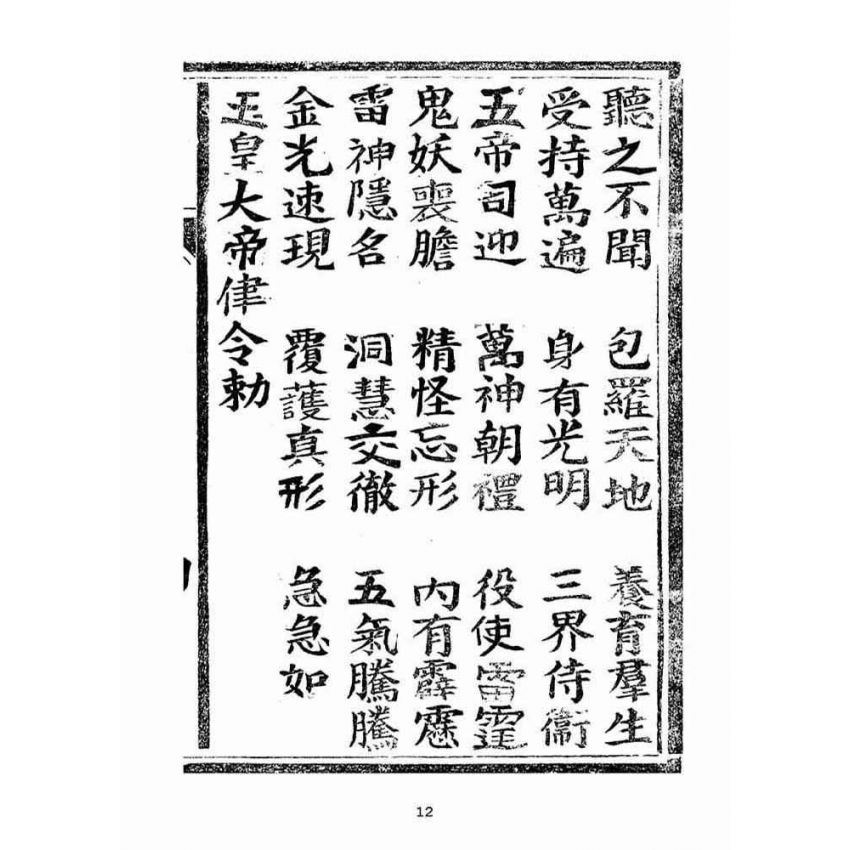 聽之不聞 包羅天地 養育羣生
受持萬遍 身有光明 三界侍衞
五帝司迎 萬神朝禮 役使雷霆
鬼妖喪膽 精怪忘形 内有霹靂
雷神隱名 洞慧交徹 五氣騰騰
金光速現 覆護真形 急急如
玉皇大帝律令勅
12